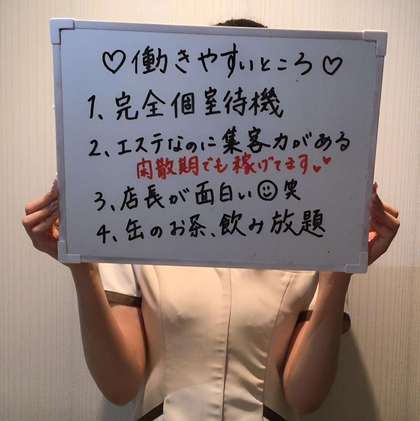 ♡働きやすいところ♡
1、完全個室待機
2、エステなのに集客力がある
閑散期でも稼げてます♥♥
3、店長が面白い☺笑
4、缶のお茶、飲み放題